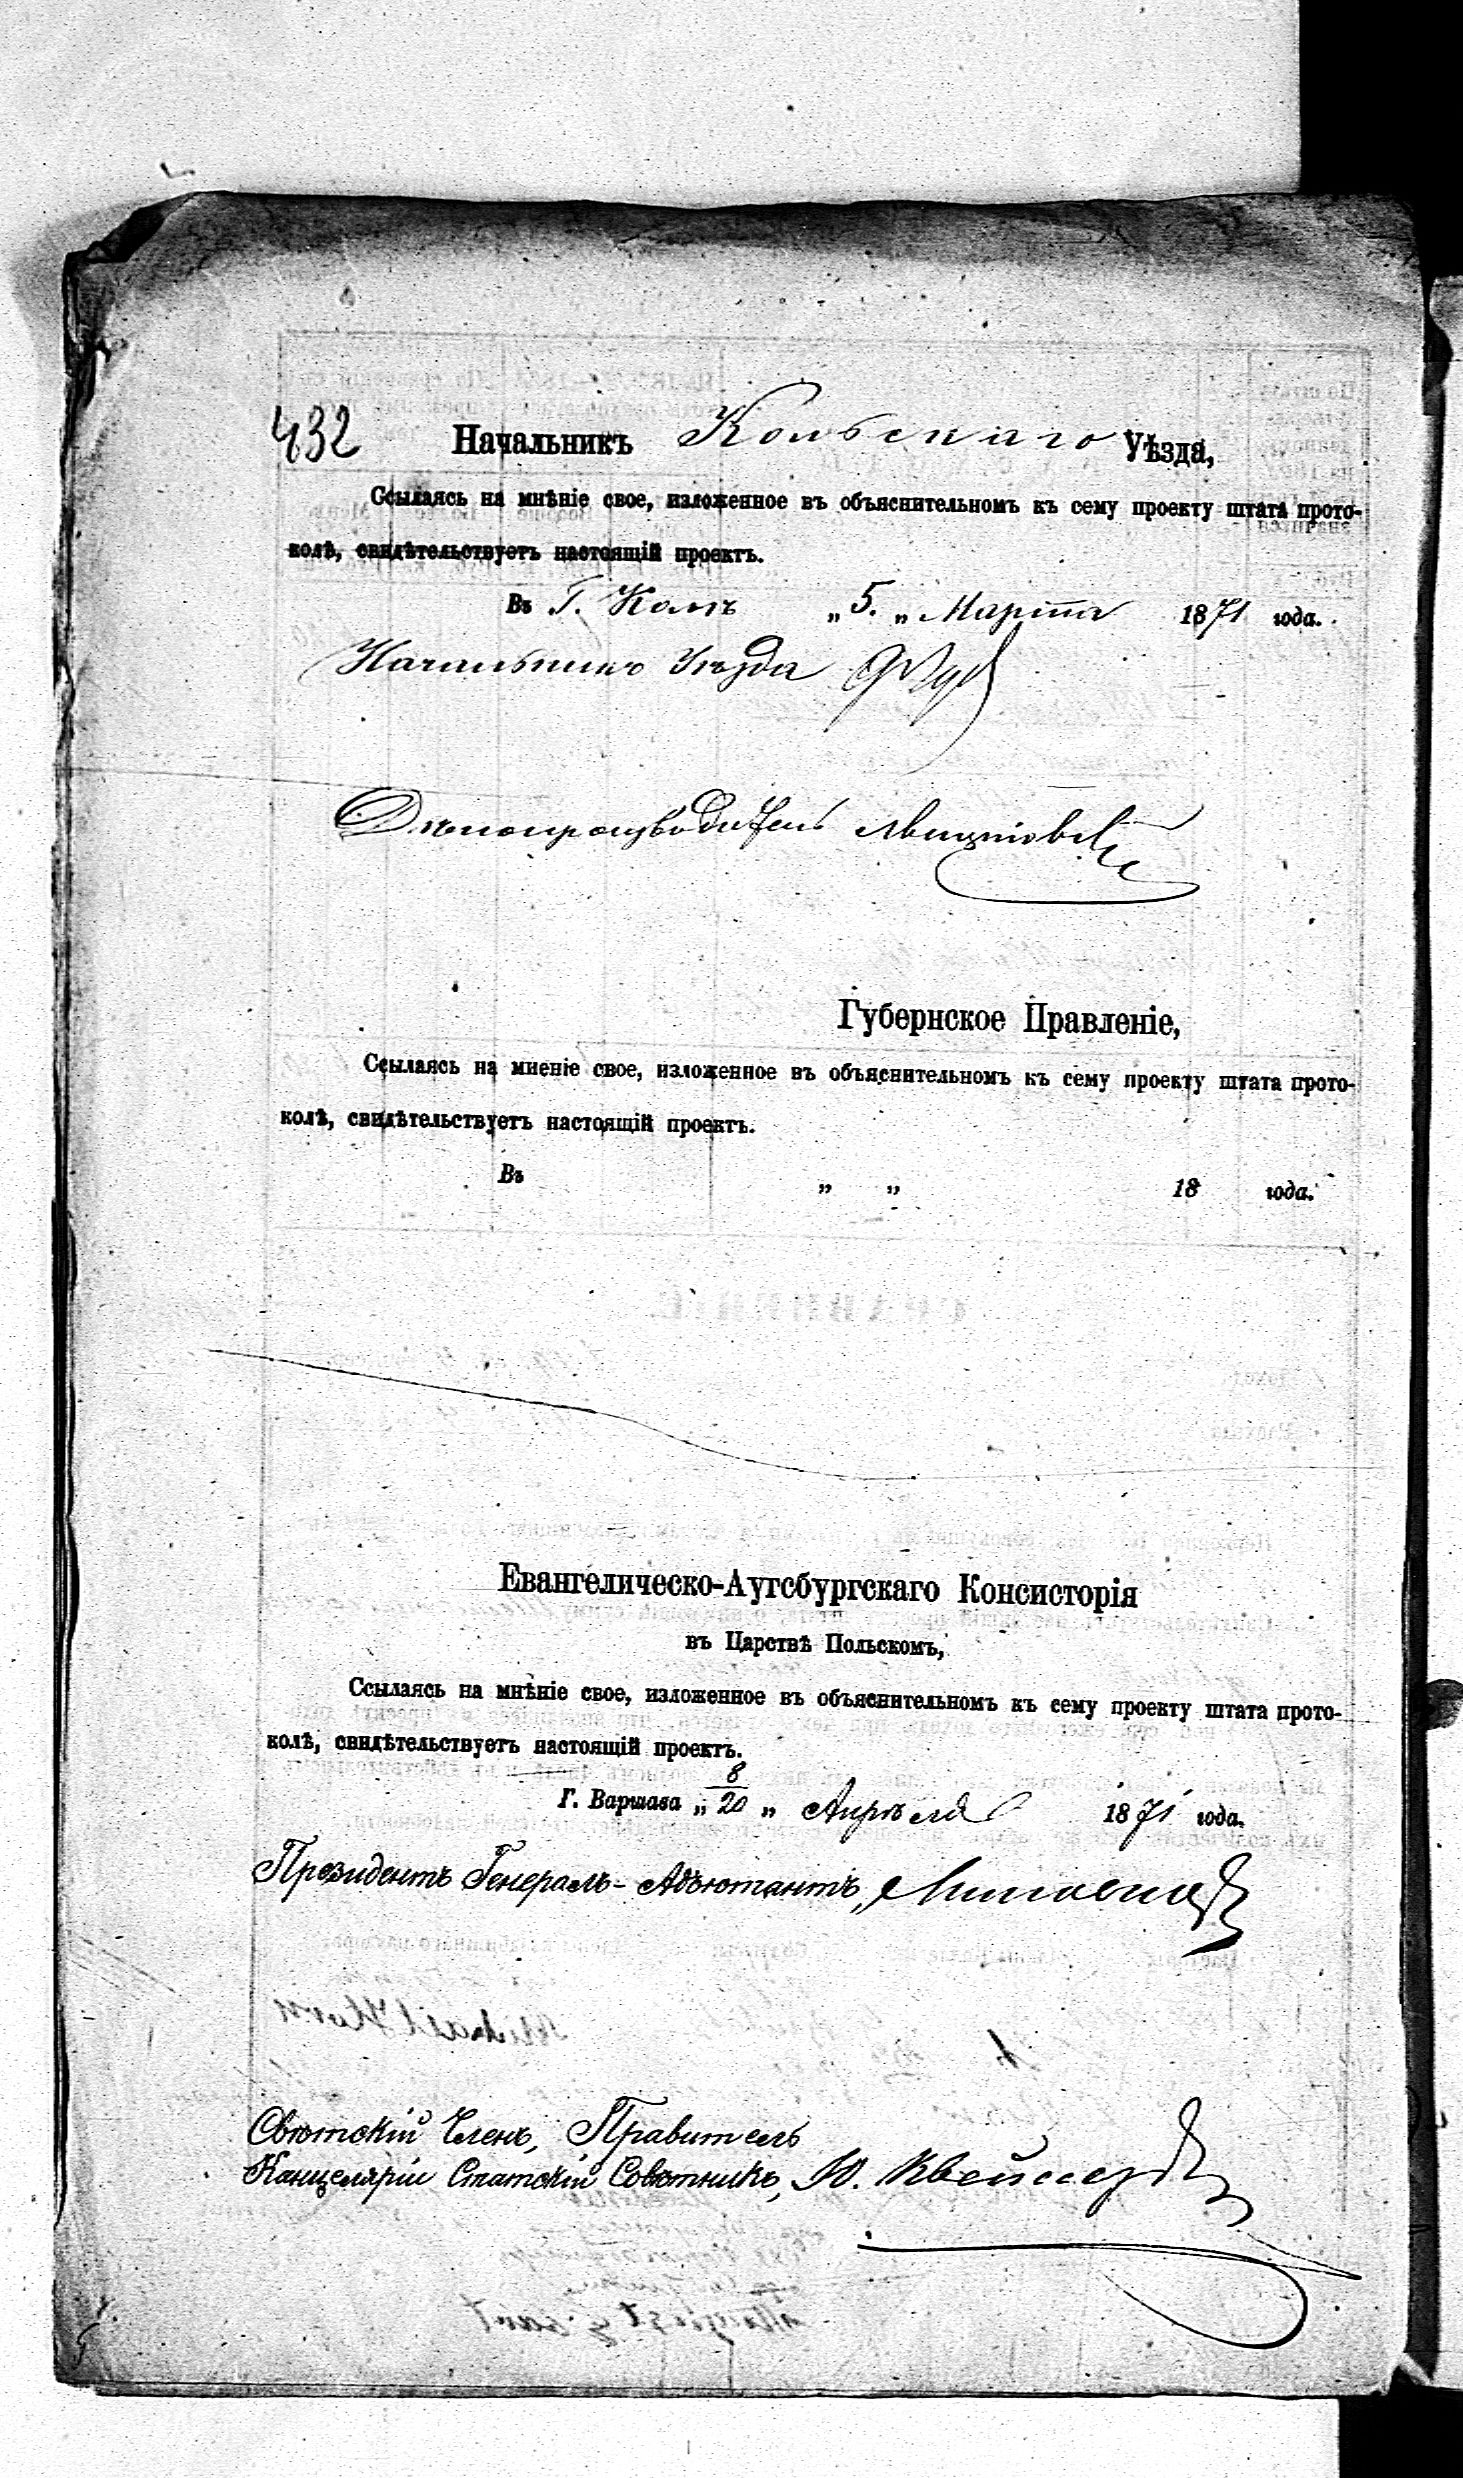 432 Начальникъ Кольскаго Уѣзда,
Ссылаясь на мнѣніе свое, изложенное въ объяснительномъ къ сему проекту штата прото-
колѣ, свидѣтельствуетъ настоящій проектъ.
Въ Г. Колѣ „ 5. „ Марта 1871 года.
Начальникъ Уѣзда
Дѣлопроизводитель
Губернское Правленіе,
Ссылаясь на мненіе свое, изложенное въ объяснительномъ къ сему проекту штата прото-
колѣ, свидѣтельствуетъ настоящій проектъ.
Въ „ „ 18 года.
Евангелическо-Аугсбургскаго Консисторія
въ Царствѣ Польскомъ,
Ссылаясь на мнѣніе свое, изложенное въ объяснительномъ къ сему проекту штата прото-
колѣ, свидѣтельствуетъ настоящій проектъ.
Г. Варшава „ 8/20 „ Апрѣля 1871 года.
Президентъ Генералъ-Адъютантъ,
Свѣтскій Членъ, Правитель
Канцеляріи Статскій Совѣтникъ, Ю.